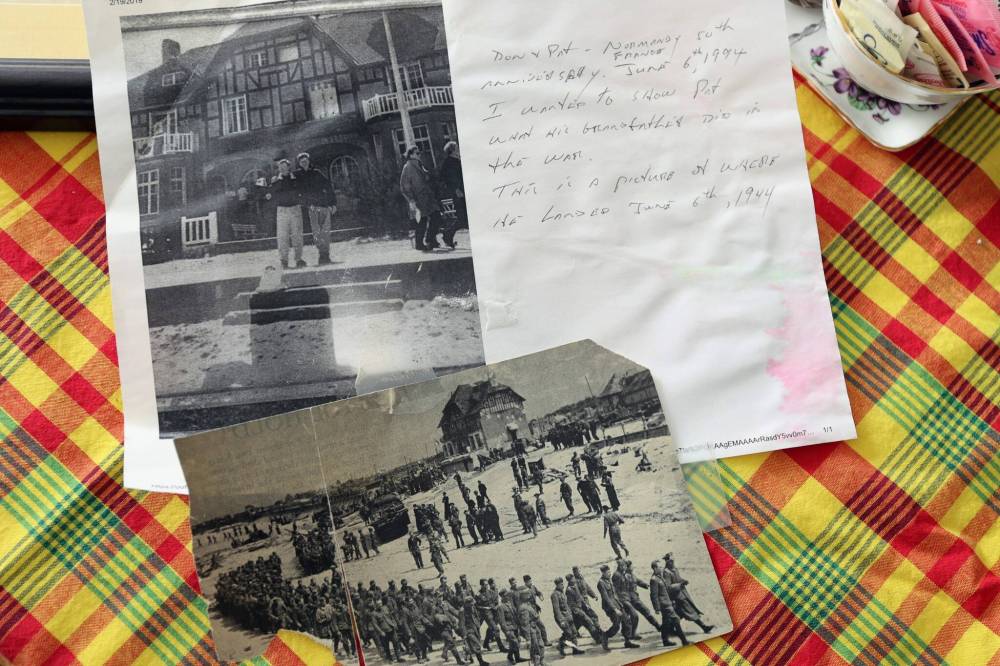 2/19/2019
DON & PAT - NORMANDY 50th
FRANCE
ANNIVERSARY. JUNE 6th, 1994
I WANTED TO SHOW PAT
WHAT HIS GRANDFATHER DID IN
THE WAR.
THIS IS A PICTURE OF WHERE
HE LANDED JUNE 6th, 1944
AAgEMAAAArRasdY5vv0m7... 1/1